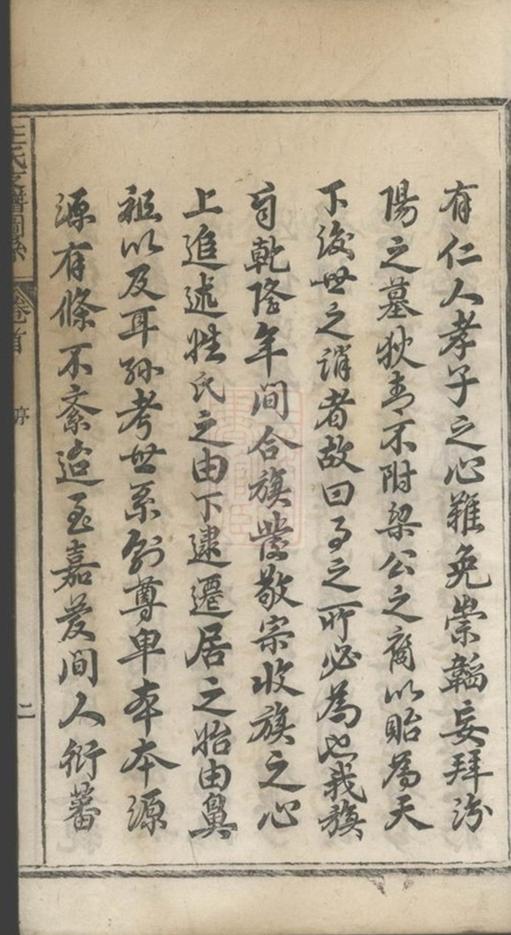 有仁人孝子之心難免崇韜妄拜汾
陽之墓狄青不附梁公之裔以貽為天
下後世之誚者故曰事之所必為也我族
自乾隆年間合族發敬宗收族之心
上追述姓氏之由下逮遷居之始由鼻
祖以及耳孫考世系別尊卑本本源
源有條不紊迨至嘉慶間人衍蕃
王氏支譜圖系 卷首 序 二